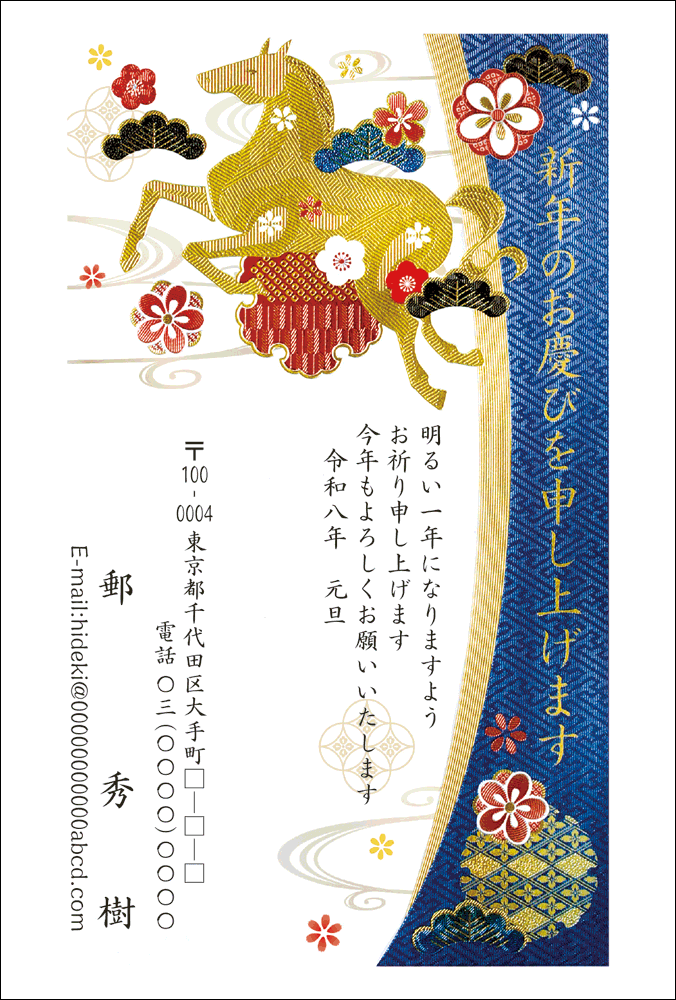 新年のお慶びを申し上げます
明るい一年になりますよう
お祈り申し上げます
今年もよろしくお願いいたします
令和八年　元旦
〒100-0004 東京都千代田区大手町□—□—□
電話 〇三(〇〇〇〇)〇〇〇〇
郵　秀樹
E-mail:hideki@00000000000abcd.com